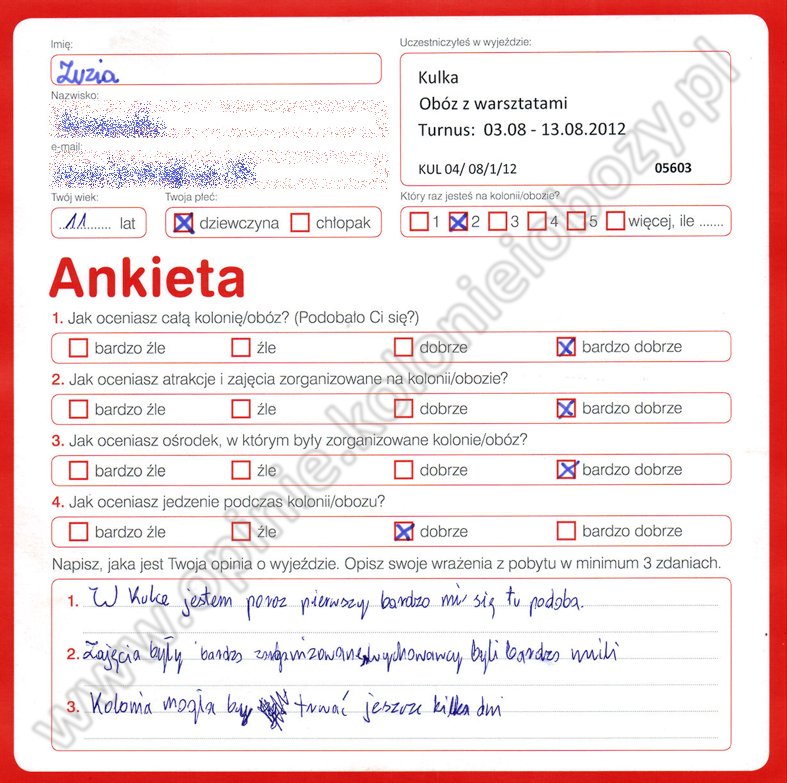 Imię:
Zuzia
Nazwisko:
e-mail:
Twój wiek:
..11...... lat
Twoja płeć:
dziewczyna chłopak
Uczestniczyłeś w wyjeździe:
Kulka
Obóz z warsztatami
Turnus: 03.08 - 13.08.2012
KUL 04/ 08/1/12 05603
Który raz jesteś na kolonii/obozie?
1 2 3 4 5 więcej, ile .......
Ankieta
1. Jak oceniasz całą kolonię/obóz? (Podobało Ci się?)
bardzo źle źle dobrze bardzo dobrze
2. Jak oceniasz atrakcje i zajęcia zorganizowane na kolonii/obozie?
bardzo źle źle dobrze bardzo dobrze
3. Jak oceniasz ośrodek, w którym były zorganizowane kolonie/obóz?
bardzo źle źle dobrze bardzo dobrze
4. Jak oceniasz jedzenie podczas kolonii/obozu?
bardzo źle źle dobrze bardzo dobrze
Napisz, jaka jest Twoja opinia o wyjeździe. Opisz swoje wrażenia z pobytu w minimum 3 zdaniach.
1. W Kulce jestem poraz pierwszy bardzo mi się tu podoba.
2. Zajęcia były bardzo zorganizowane, wychowawcy byli bardzo mili
3. Kolonia mogła by trwać jeszcze kilka dni
www.opinie.kolonieiobozy.pl